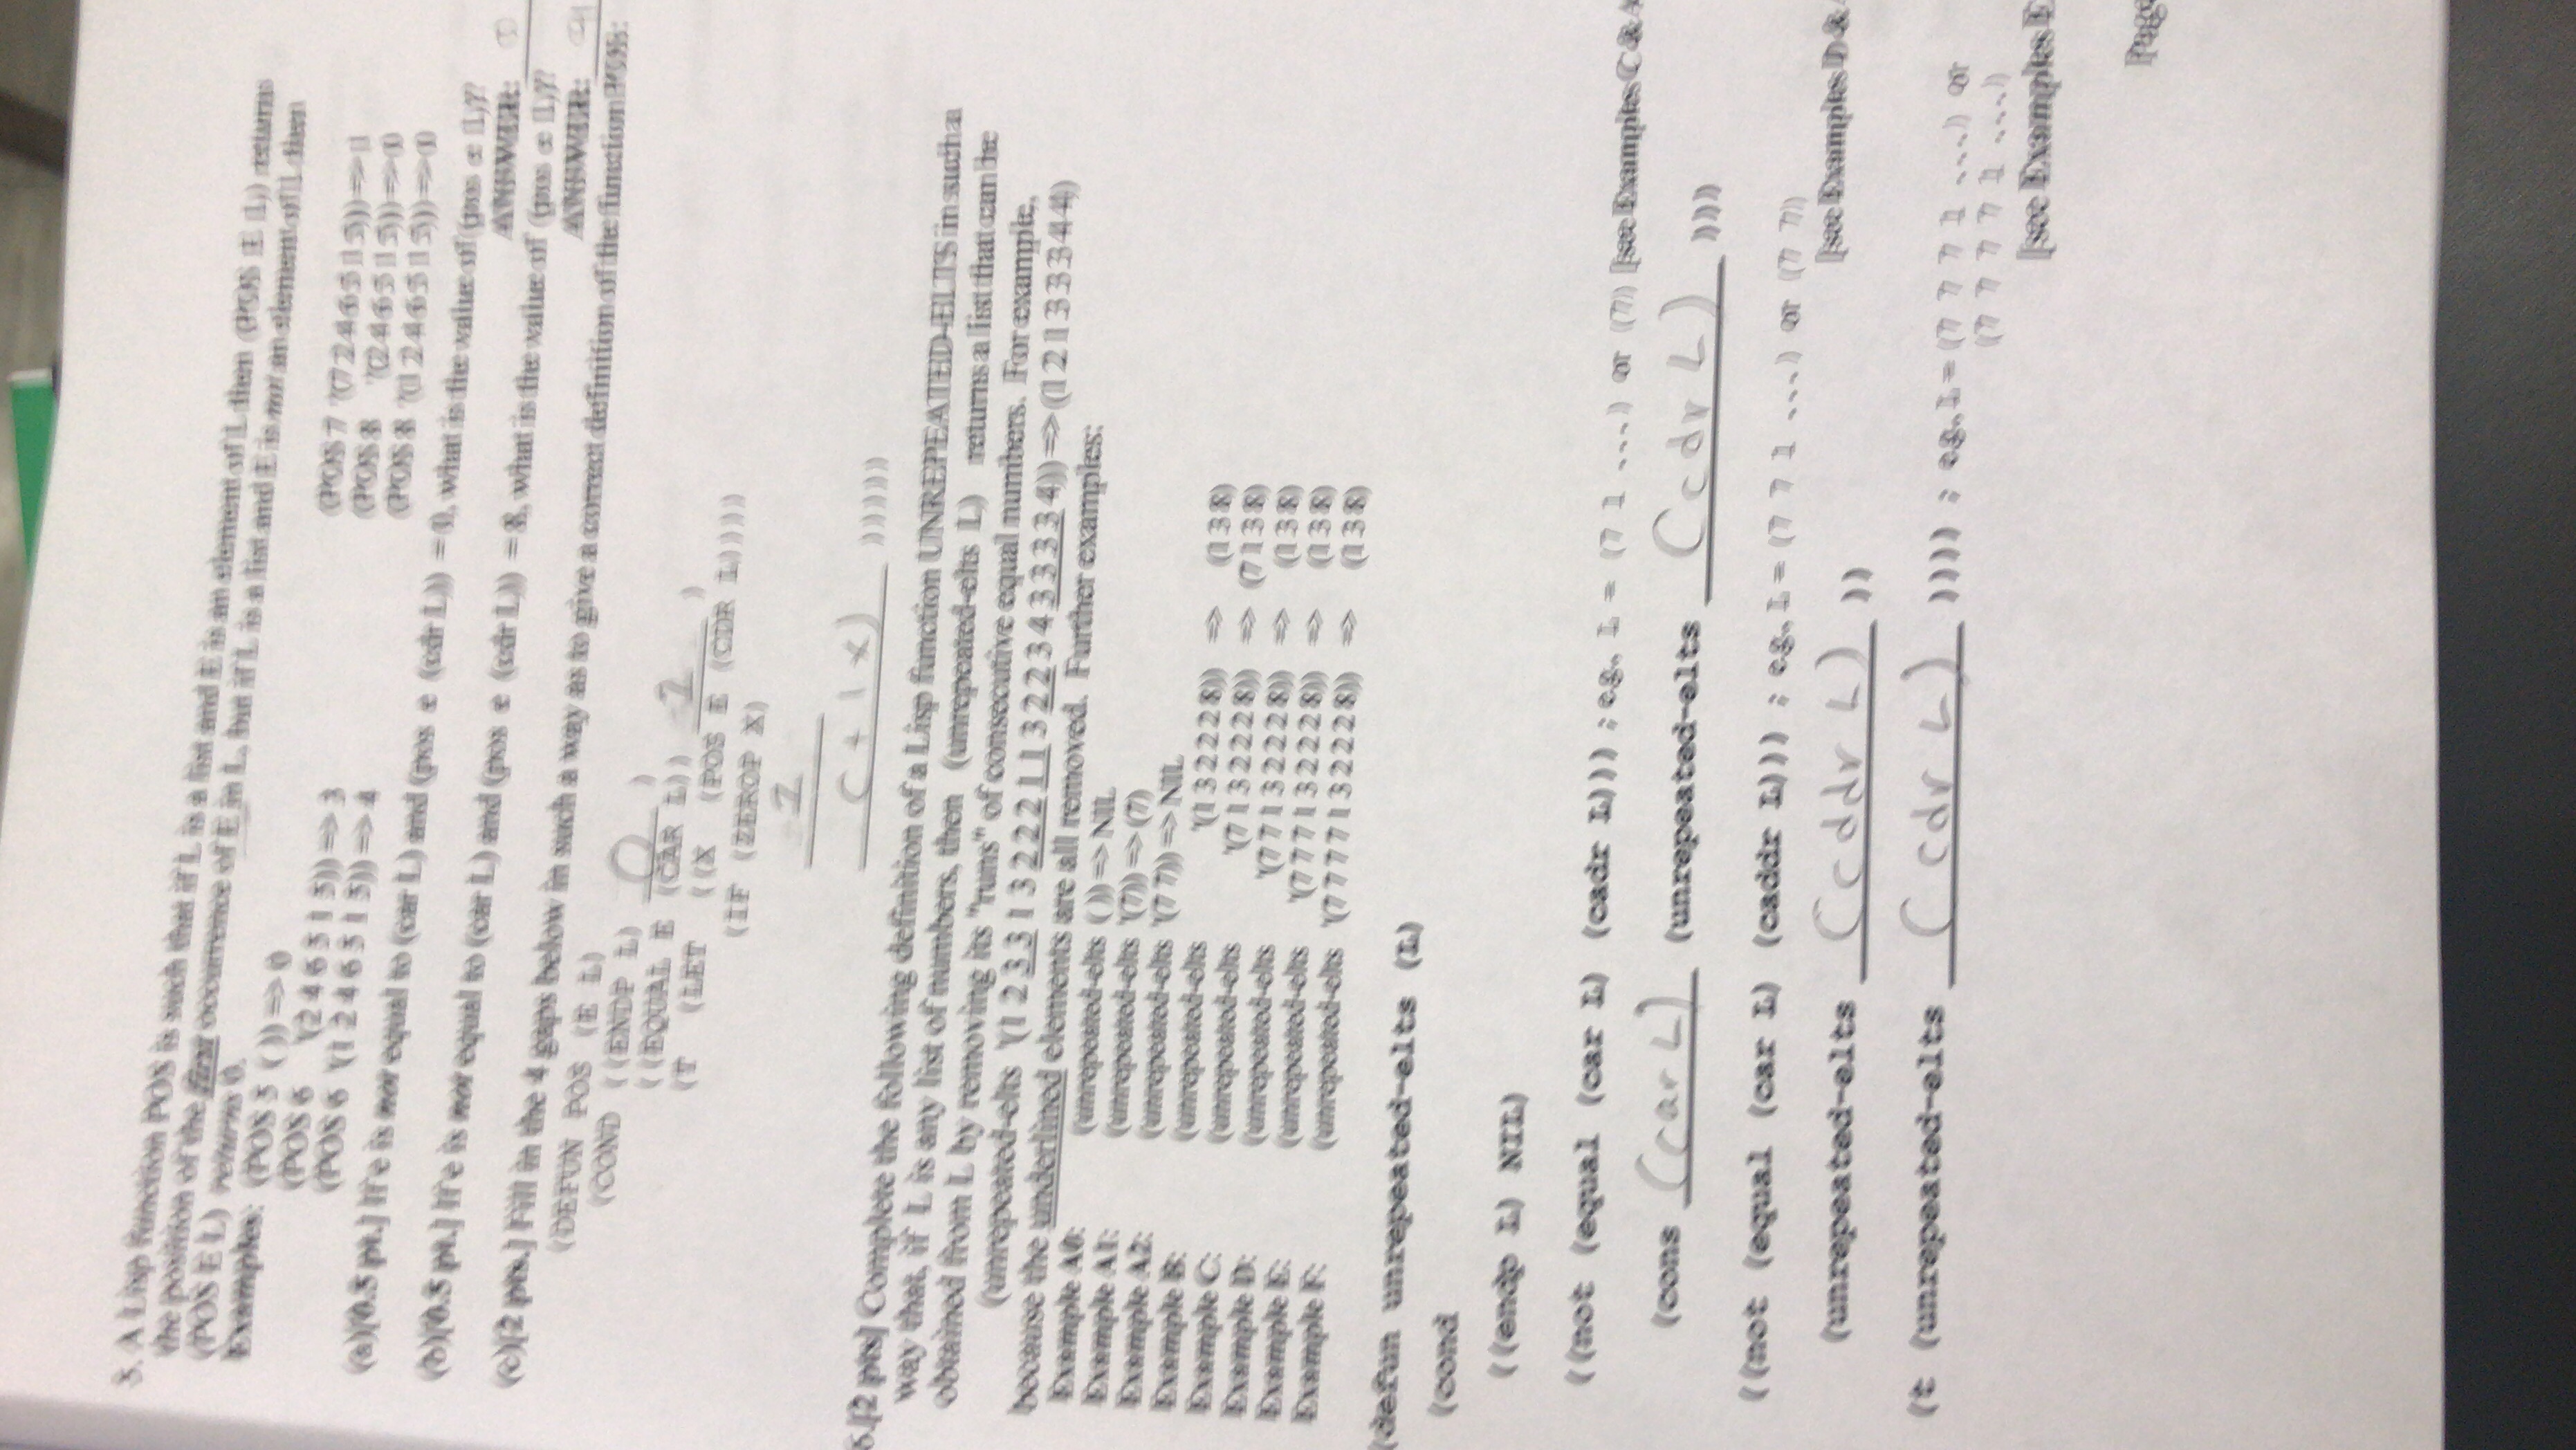 5. A Lisp function POS is such that if L is a list and E is an element of L then (POS E L) returns
the position of the first occurrence of E in L, but if L is a list and E is not an element of L then
(POS E L) returns 0.
Examples: (POS 5 ( )) => 0
(POS 6 '(2 4 6 5 1 5)) => 3 (POS 7 '(7 2 4 6 5 1 5)) => 1
(POS 6 '(1 2 4 6 5 1 5)) => 4 (POS 8 '(2 4 6 5 1 5)) => 0
(POS 8 '(1 2 4 6 5 1 5)) => 0
(a)[0.5 pt.] If e is not equal to (car L) and (pos e (cdr L)) = 0, what is the value of (pos e L)?
ANSWER:
(b)[0.5 pt.] If e is not equal to (car L) and (pos e (cdr L)) = 8, what is the value of (pos e L)?
ANSWER:
(c)[2 pts.] Fill in the 4 gaps below in such a way as to give a correct definition of the function POS:
(DEFUN POS (E L)
(COND ((ENDP L) 0 )
((EQUAL E (CAR L)) )
(T (LET ((X (POS E (CDR L)))))
(IF (ZEROP X)
(+ 1 x) )))))
6.[2 pts] Complete the following definition of a Lisp function UNREPEATED-ELTS in such a
way that, if L is any list of numbers, then (unrepeated-elts L) returns a list that can be
obtained from L by removing its "runs" of consecutive equal numbers. For example,
(unrepeated-elts '(1 2 3 3 1 3 2 2 2 1 1 3 2 2 3 4 3 3 3 3 4)) => (1 2 1 3 3 3 4 4)
because the underlined elements are all removed. Further examples:
Example A0: (unrepeated-elts ( )) => NIL
Example A1: (unrepeated-elts '(7)) => (7)
Example A2: (unrepeated-elts '(7 7)) => NIL
Example B: (unrepeated-elts '(1 3 2 2 2 8)) => (1 3 8)
Example C: (unrepeated-elts '(7 1 3 2 2 2 8)) => (7 1 3 8)
Example D: (unrepeated-elts '(7 7 1 3 2 2 2 8)) => (1 3 8)
Example E: (unrepeated-elts '(7 7 7 1 3 2 2 2 8)) => (1 3 8)
Example F: (unrepeated-elts '(7 7 7 7 1 3 2 2 2 8)) => (1 3 8)
(defun unrepeated-elts (L)
(cond
((endp L) NIL)
((not (equal (car L) (cadr L))) ; eg., L = (7 1 ....) or (7) [see Examples C &
(cons (car L) (unrepeated-elts (cdr L) )))
((not (equal (car L) (caddr L))) ; eg., L = (7 7 1 ....) or (7 7)
[see Examples D &
(unrepeated-elts (cddr L) ))
(t (unrepeated-elts (cdr L) )))) ; eg., L = (7 7 7 1 ....) or
(7 7 7 7 1 ....)
[see Examples E
Page